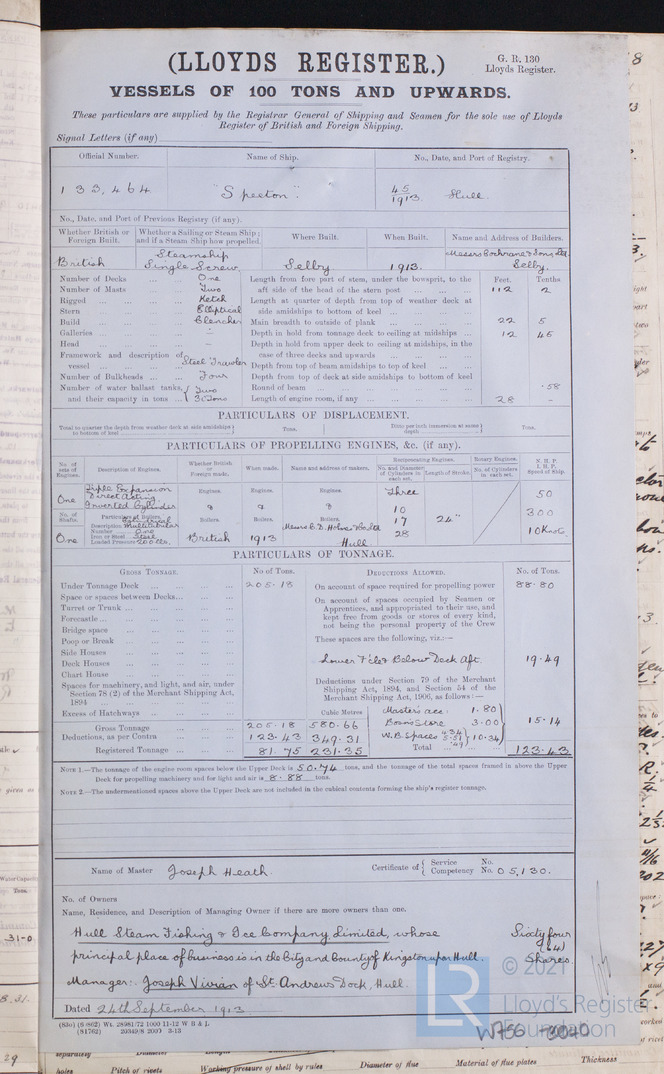 (LLOYDS REGISTER.)
G. R. 130
Lloyds Register.
VESSELS OF 100 TONS AND UPWARDS.
These particulars are supplied by the Registrar General of Shipping and Seamen for the sole use of Lloyds
Register of British and Foreign Shipping.
Signal Letters (if any)
Official Number. Name of Ship. No., Date, and Port of Registry.
133,464 "Speeton". 45/1913. Hull.
No., Date, and Port of Previous Registry (if any).
Whether British or Foreign Built. Whether a Sailing or Steam Ship; and if a Steam Ship how propelled. Where Built. When Built. Name and Address of Builders.
British Steamship Single Screw Selby. 1913. Messrs Cochrane & Sons Ltd. Selby.
Number of Decks ... One Length from fore part of stem, under the bowsprit, to the Feet. Tenths.
Number of Masts ... Two aft side of the head of the stern post ... 112 2
Rigged ... Ketch Length at quarter of depth from top of weather deck at
Stern ... Elliptical side amidships to bottom of keel ...
Build ... Clencher Main breadth to outside of plank ... 22 5
Galleries ... – Depth in hold from tonnage deck to ceiling at midships ... 12 45
Head ... – Depth in hold from upper deck to ceiling at midships, in the
Framework and description of case of three decks and upwards ...
vessel ... Steel Trawler Depth from top of beam amidships to top of keel ...
Number of Bulkheads ... Four Depth from top of deck at side amidships to bottom of keel
Number of water ballast tanks, Two Round of beam ... .58
and their capacity in tons ... Tons Length of engine room, if any ... 28 –
PARTICULARS OF DISPLACEMENT.
Total to quarter the depth from weather deck at side amidships to bottom of keel Tons. Ditto per inch immersion at same depth Tons.
PARTICULARS OF PROPELLING ENGINES, &c. (if any).
No. of sets of Engines. Description of Engines. Whether British or Foreign made. When made. Name and address of makers. Reciprocating Engines. No. and Diameter of Cylinders in each set. Length of Stroke. Rotary Engines. No. of Cylinders in each set. N.H.P. I.H.P. Speed of Ship.
One Triple Expansion Direct Acting Inverted Cylinder Engines. Engines. Engines. Three 50
No. of Shafts. Particulars of Boilers. Boilers. Boilers. Boilers. 10 17 28 24" 300
Description Cylindrical Multitubular
Number One
Iron or Steel Steel
Loaded Pressure 200 lbs.
One British 1913 Hull 10 Knots
PARTICULARS OF TONNAGE.
GROSS TONNAGE. No of Tons. DEDUCTIONS ALLOWED. No. of Tons.
Under Tonnage Deck ... 205.18 On account of space required for propelling power 88.80
Space or spaces between Decks... On account of spaces occupied by Seamen or
Turret or Trunk ... Apprentices, and appropriated to their use, and
Forecastle... kept free from goods or stores of every kind,
Bridge space ... not being the personal property of the Crew
Poop or Break ... These spaces are the following, viz.:—
Side Houses
Deck Houses Lower Below Deck Aft. 19.49
Chart House
Spaces for machinery, and light, and air, under Deductions under Section 79 of the Merchant
Section 78 (2) of the Merchant Shipping Act, Shipping Act, 1894, and Section 54 of the
1894 ... Merchant Shipping Act, 1906, as follows:—
Excess of Hatchways ... Cubic Metres Master's acc: 1.80
Gross Tonnage 205.18 580.66 Bosn's Store 3.00 15.14
Deductions, as per Contra ... 123.43 349.31 W.B. Spaces 10.34
Registered Tonnage ... 81.75 231.35 Total ... 123.43
NOTE 1.—The tonnage of the engine room spaces below the Upper Deck is 50.74 tons, and the tonnage of the total spaces framed in above the Upper
Deck for propelling machinery and for light and air is 8.88 tons.
NOTE 2.—The undermentioned spaces above the Upper Deck are not included in the cubical contents forming the ship's register tonnage.
Name of Master Joseph Heath. Certificate of { Service No.
Competency No. 05,130.
No. of Owners
Name, Residence, and Description of Managing Owner if there are more owners than one.
Hull Steam Fishing & Ice Company Limited, whose Sixty four
principal place of business is in the City and County of Kingston upon Hull. (64) Shares.
Manager:- Joseph Vivian of St. Andrews Dock, Hull.
Dated 24th September 1913
© 2021
LR
Lloyd's Register
Foundation
W756-3040
Pitch of rivets
Working pressure of shell by rules
Diameter of flue
Material of flue plates
Thickness